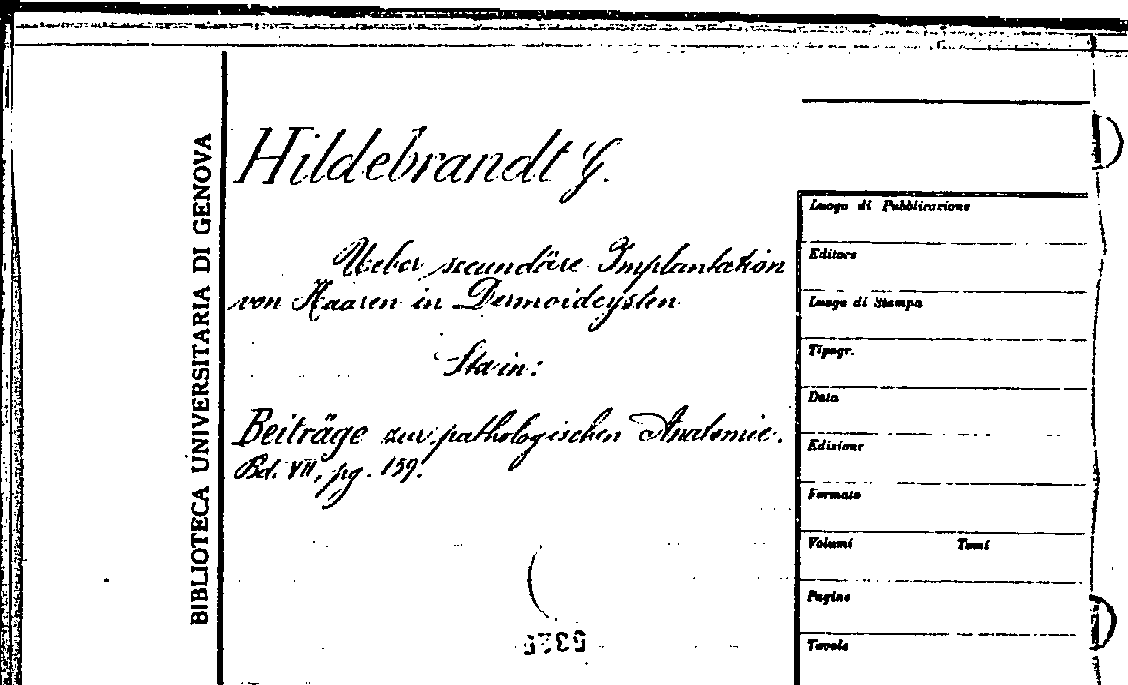 BIBLIOTECA UNIVERSITARIA DI GENOVA
Hildebrandt G.
Ueber secundäre Implantation
von Haaren in Dermoidcysten
Sta in:
Beiträge zur pathologischen Anatomie.
Bd. VII, pg. 159.
Luogo di Pubblicazione
Editore
Luogo di Stampa
Tipogr.
Data
Edizione
Formato
Volumi Tomi
Pagine
Tavole